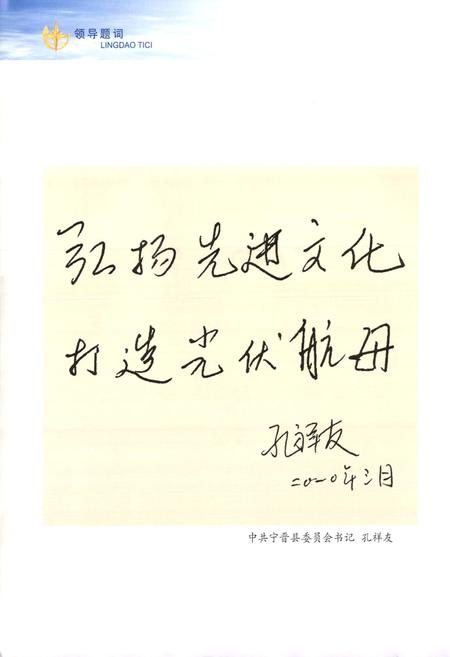 领导题词
LINGDAO TICI
弘扬先进文化
打造光伏航母
孔祥友
二〇一〇年三月
中共宁晋县委员会书记 孔祥友